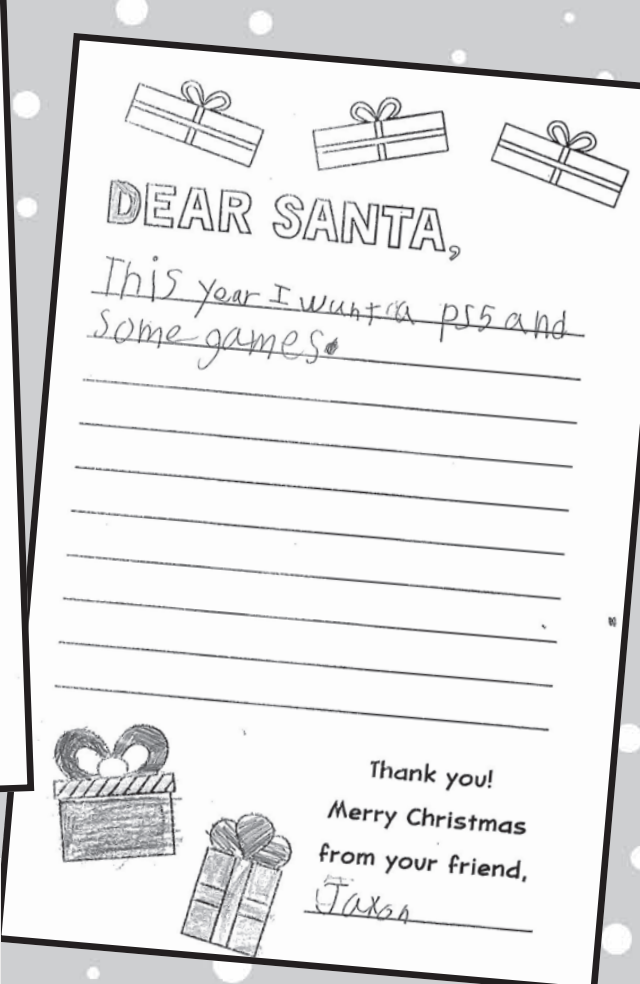 DEAR SANTA,
This year I want a ps5 and
some games.
Thank you!
Merry Christmas
from your friend,
Jaxon